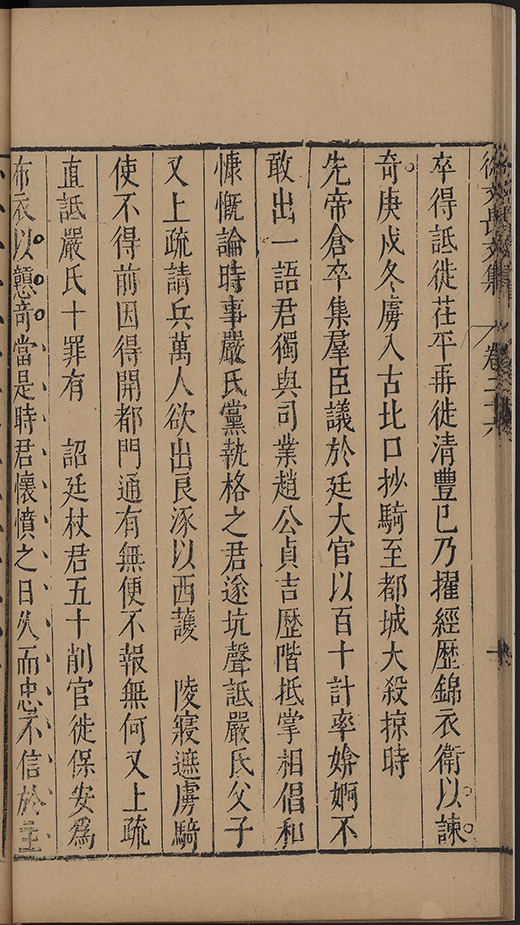 徐文長文集 卷二十六 十
卒得詆徙茌平再徙清豐已乃擢經歷錦衣衛以諫
奇庚戌冬虜入古北口抄騎至都城大殺掠時
先帝倉卒集羣臣議於廷大官以百十計率媕婀不
敢出一語君獨與司業趙公貞吉歷階抵掌相倡和
慷慨論時事嚴氏黨執格之君遂抗聲詆嚴氏父子
又上疏請兵萬人欲出良涿以西護 陵寢遮虜騎
使不得前因得開都門通有無便不報無何又上疏
直詆嚴氏十罪有 詔廷杖君五十削官徙保安爲
布衣以戇奇當是時君懷憤之日久而忠不信於主